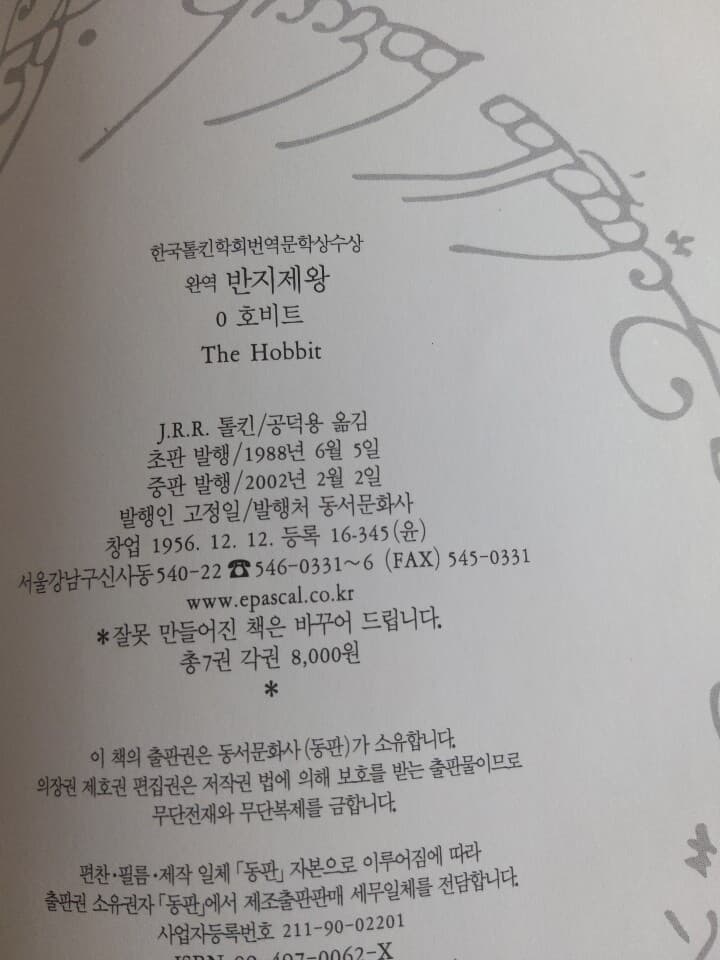 한국톨킨학회번역문학상수상
완역 반지제왕
0 호비트
The Hobbit
J.R.R. 톨킨/공덕용 옮김
초판 발행/1988년 6월 5일
중판 발행/2002년 2월 2일
발행인 고정일/발행처 동서문화사
창업 1956. 12. 12. 등록 16-345(윤)
서울강남구신사동540-22 ☎546-0331~6 (FAX) 545-0331
www.epascal.co.kr
*잘못 만들어진 책은 바꾸어 드립니다.
총7권 각권 8,000원
*
이 책의 출판권은 동서문화사(동판)가 소유합니다.
의장권 제호권 편집권은 저작권 법에 의해 보호를 받는 출판물이므로
무단전재와 무단복제를 금합니다.
편찬·필름·제작 일체 「동판」 자본으로 이루어짐에 따라
출판권 소유권자 「동판」에서 제조출판판매 세무일체를 전담합니다.
사업자등록번호 211-90-02201
ISBN 89-497-0062-X